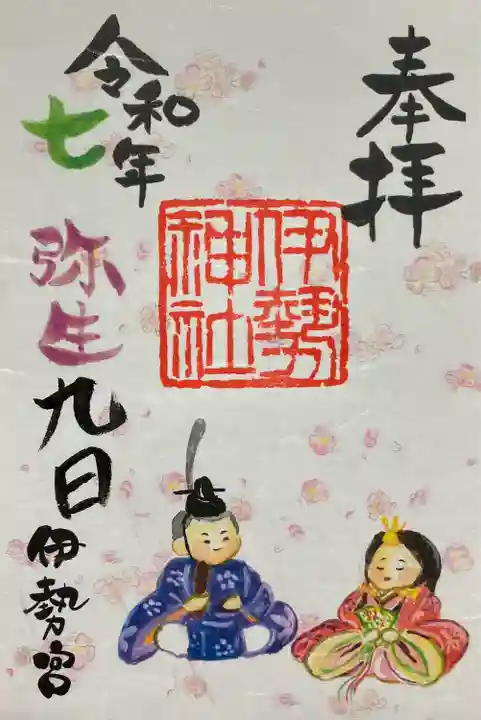 奉拝
伊勢
神社
令和七年
弥生九日
伊勢宮